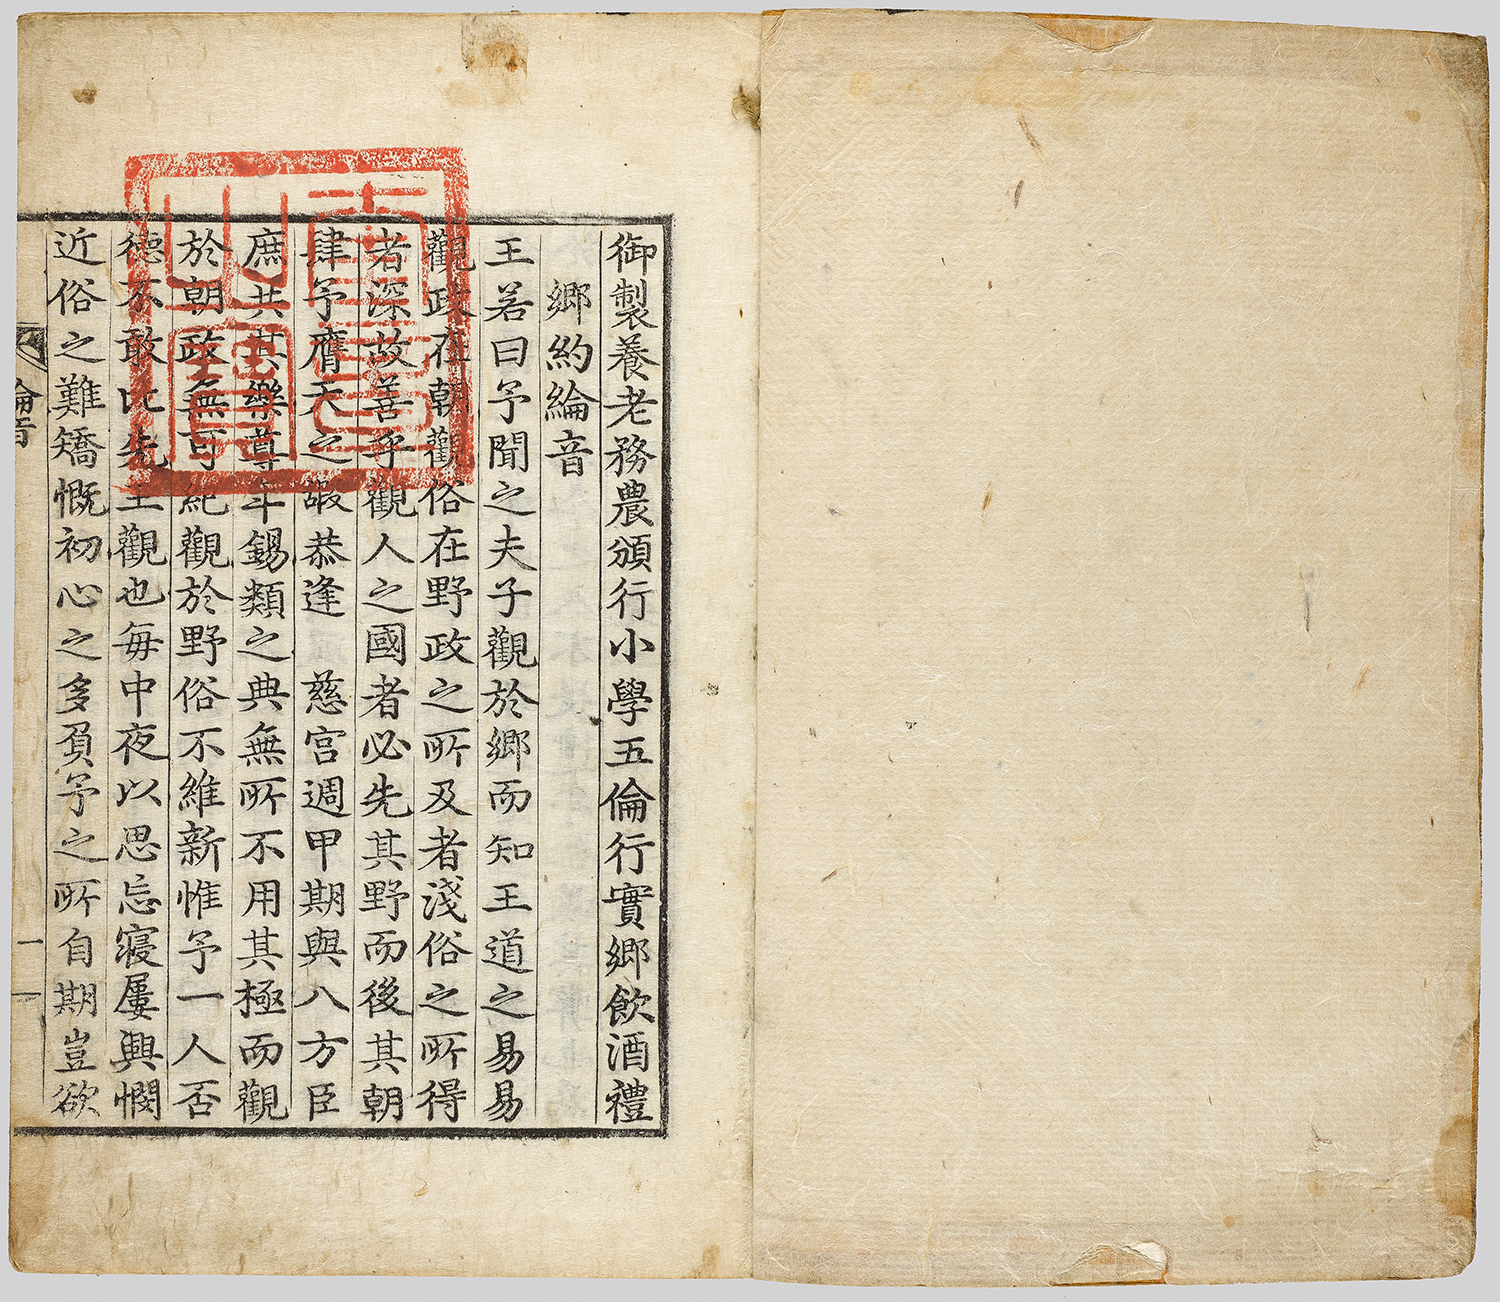 御製養老務農頒行小學五倫行實鄉飮酒禮
鄉約綸音
王若曰予聞之夫子觀於鄉而知王道之易易
觀政在朝觀俗在野政之所及者淺俗之所得
者深故善乎觀人之國者必先其野而後其朝
肆予膺天之嘏恭逢 慈宮週甲期與八方臣
庶共其樂尊年錫類之典無所不用其極而觀
於朝政無可紀觀於野俗不維新惟予一人否
德不敢比先王觀也每中夜以思忘寢屢興憫
近俗之難矯慨初心之多負予之所自期豈欲
綸音
一